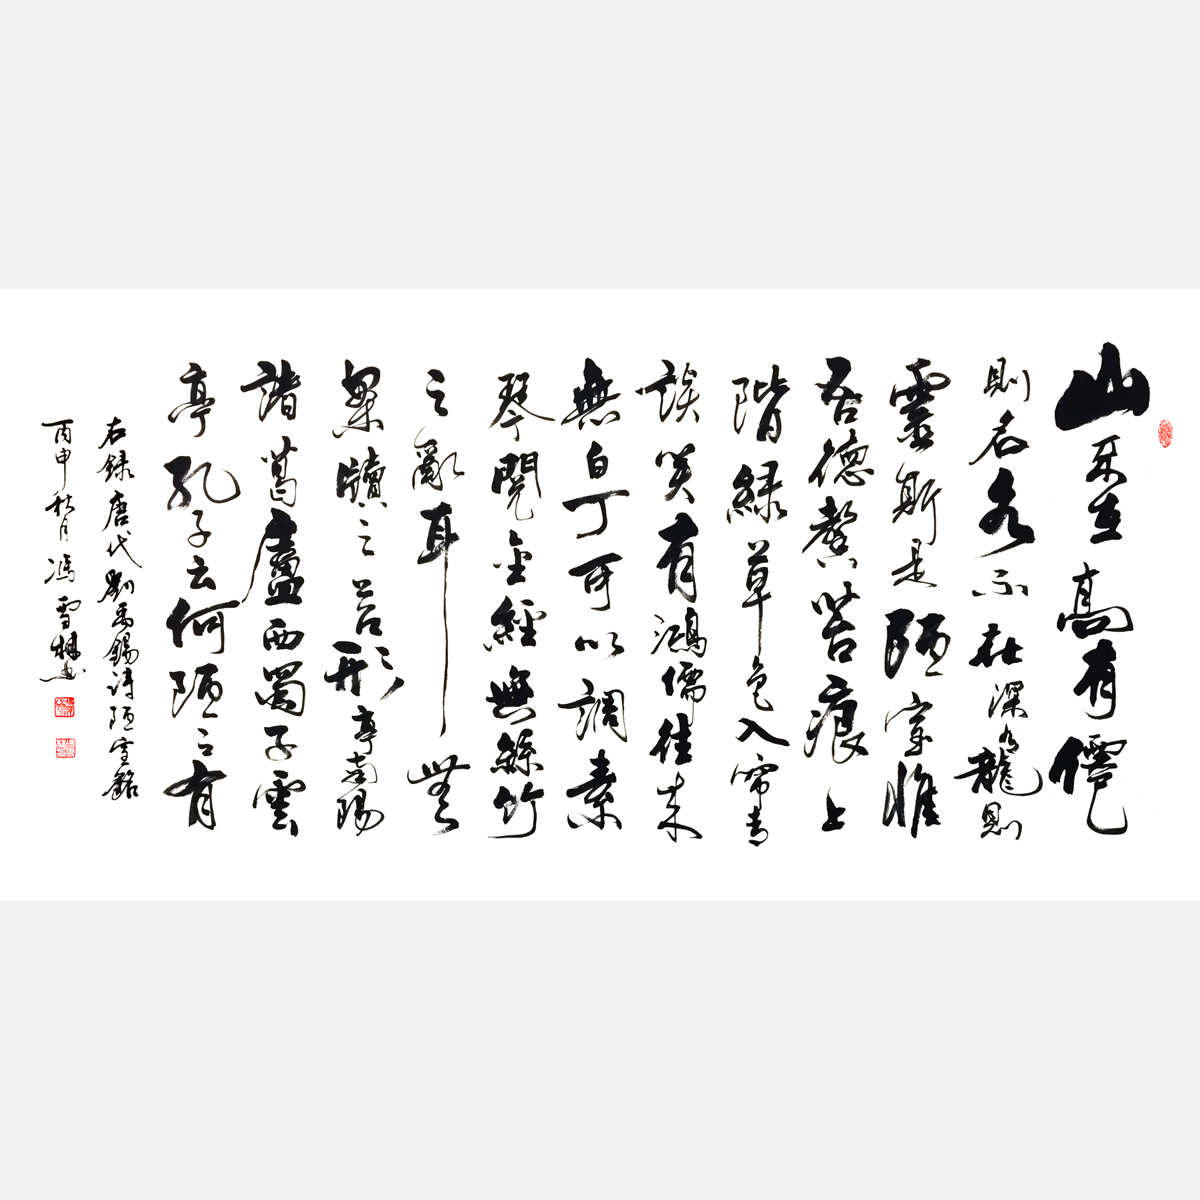 山不在高有僊
則名水不在深有龍則
靈斯是陋室惟
吾德馨苔痕上
階緑草色入帘青
談笑有鴻儒往來
無白丁可以調素
琴閲金經無絲竹
之亂耳無
案牘之勞形亭南陽
諸葛廬西蜀子雲
亭孔子云何陋之有
右録唐代劉禹錫詩陋室銘
丙申秋月馮雪書